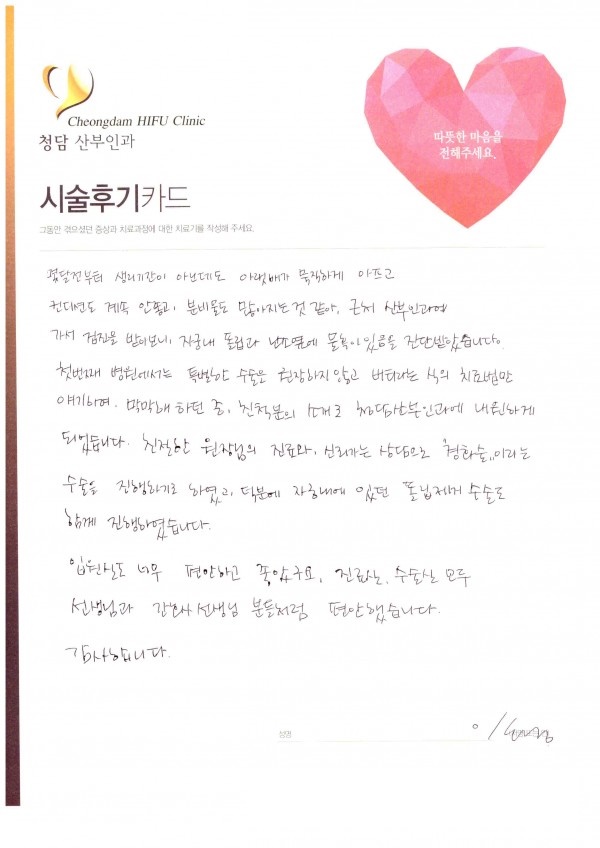 Cheongdam HIFU Clinic
청담 산부인과
따뜻한 마음을
전해주세요.
시술후기카드
그동안 겪으셨던 증상과 치료과정에 대한 치료기를 작성해 주세요.
몇달전부터 생리기간이 아닌데도 아랫배가 묵직하게 아프고
컨디션도 계속 안좋고, 분비물도 많아지는것 같아, 근처 산부인과에
가서 검진을 받아보니, 자궁내 폴립과 난소옆에 물혹이 있음을 진단받았습니다.
첫번째 병원에서는 특별한 수술은 권장하지 않고 버티라는 식의 치료법만
얘기하여. 막막해 하던 중, 친척분의 소개로 청담산부인과에 내원하게
되었습니다. 친절한 원장님의 진료와, 신뢰가는 상담으로 "경화술"이라는
수술을 진행하기로 하였고, 덕분에 자궁내에 있던 폴립제거 수술도
함께 진행하였습니다.
입원실도 너무 편안하고 좋았구요, 진료실, 수술실 모두
선생님과 간호사 선생님 분들처럼 편안했습니다.
감사합니다.
성명